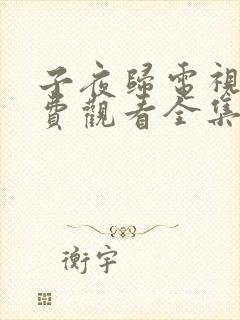 子夜歸電視
費觀看全集
衡宇